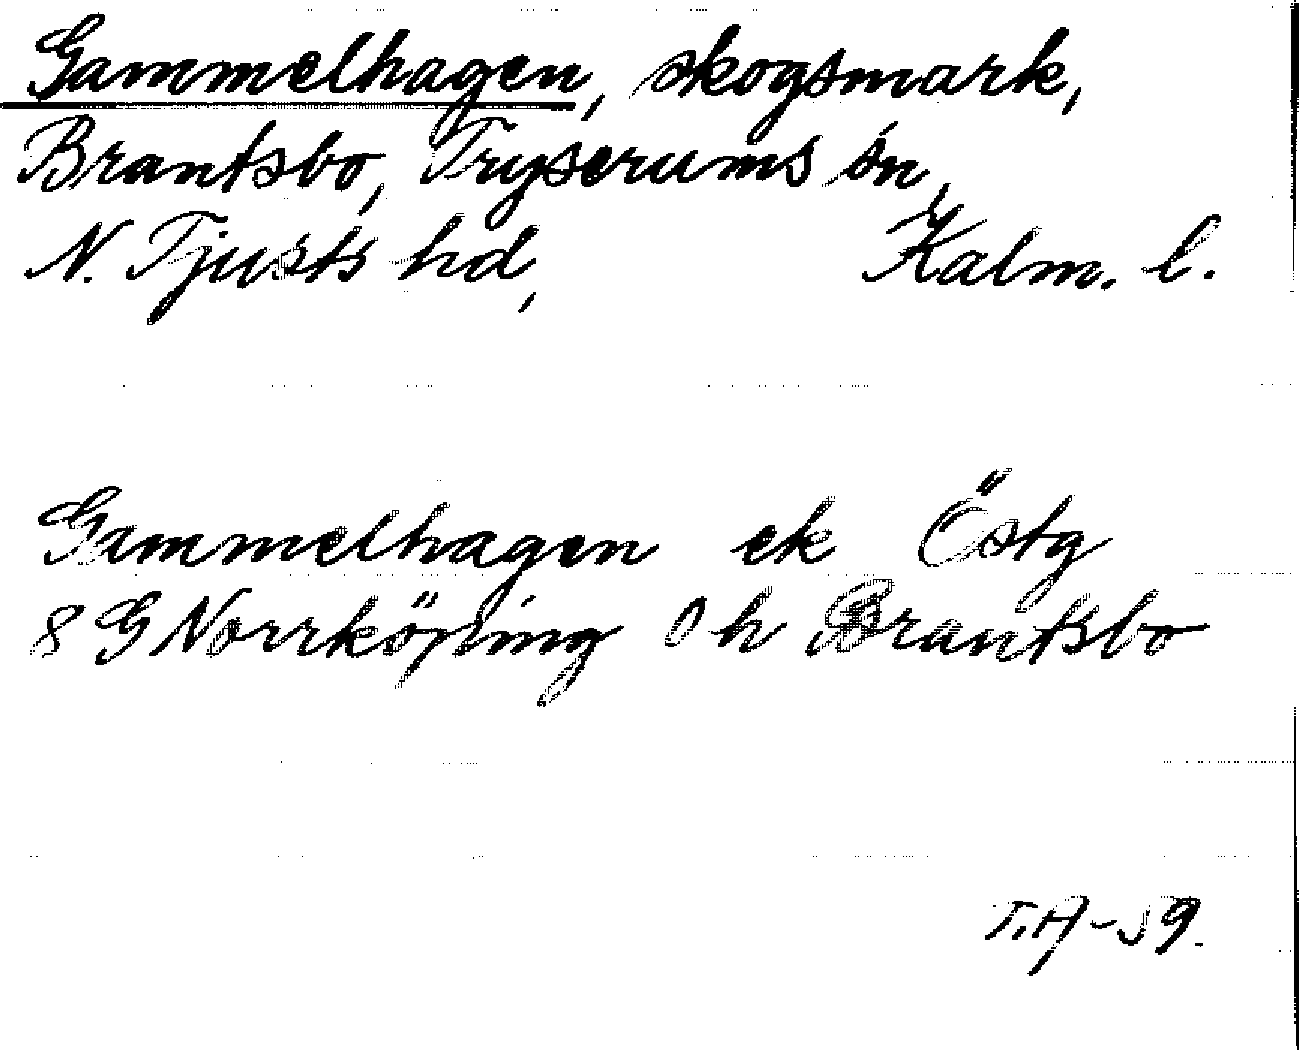 Gammelhagen, skogsmark,
Brantsbo, Tryserums sn,
N. Tjusts hd, Kalm. l.
Gammelhagen ek Östg
8 G Norrköping 0 h Brantsbo